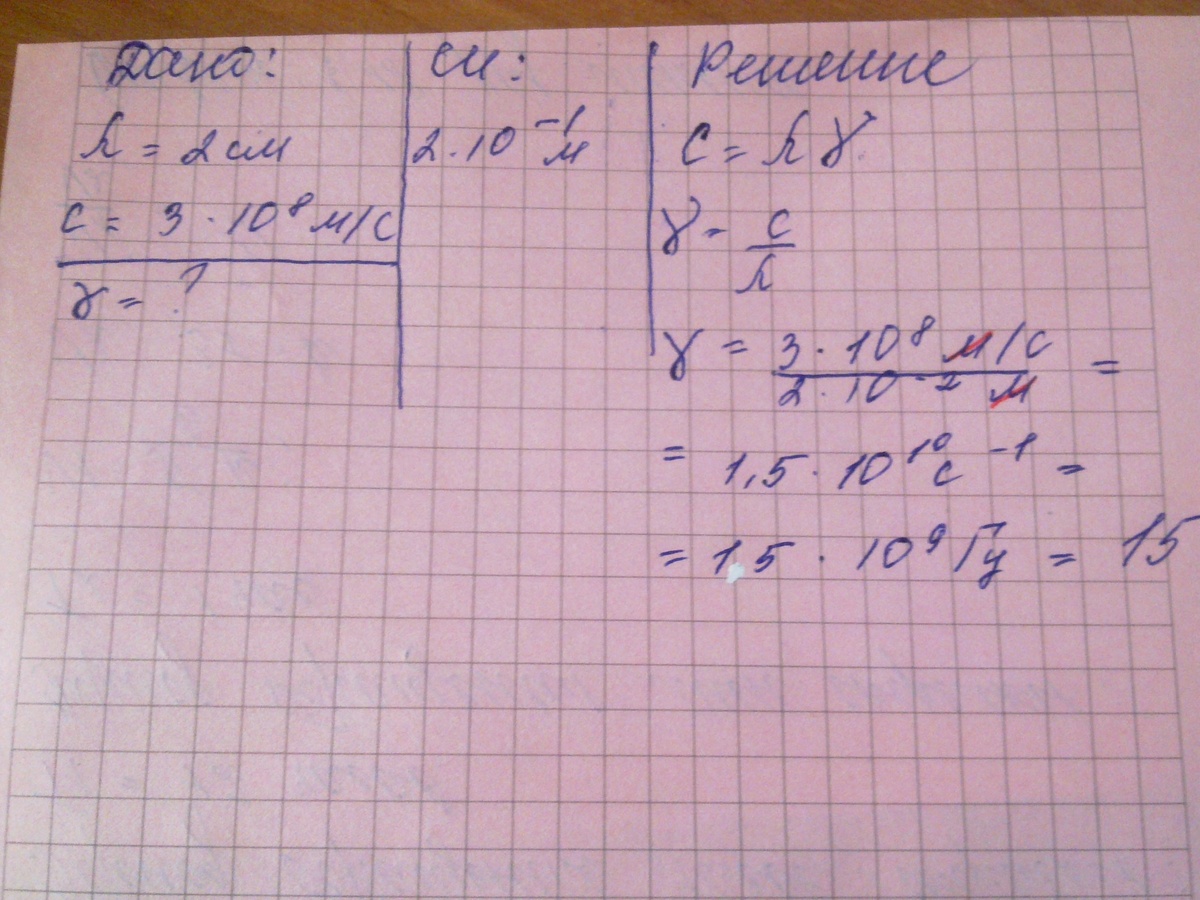 Дано:
λ = 2 см
c = 3 · 10⁸ м/с
γ = ?
СИ:
2 · 10⁻¹ м
Решение
c = λγ
γ = c/λ
γ = 3 · 10⁸ м/с / 2 · 10⁻² м =
= 1,5 · 10¹⁰ с⁻¹ =
= 1,5 · 10⁹ Гц = 15